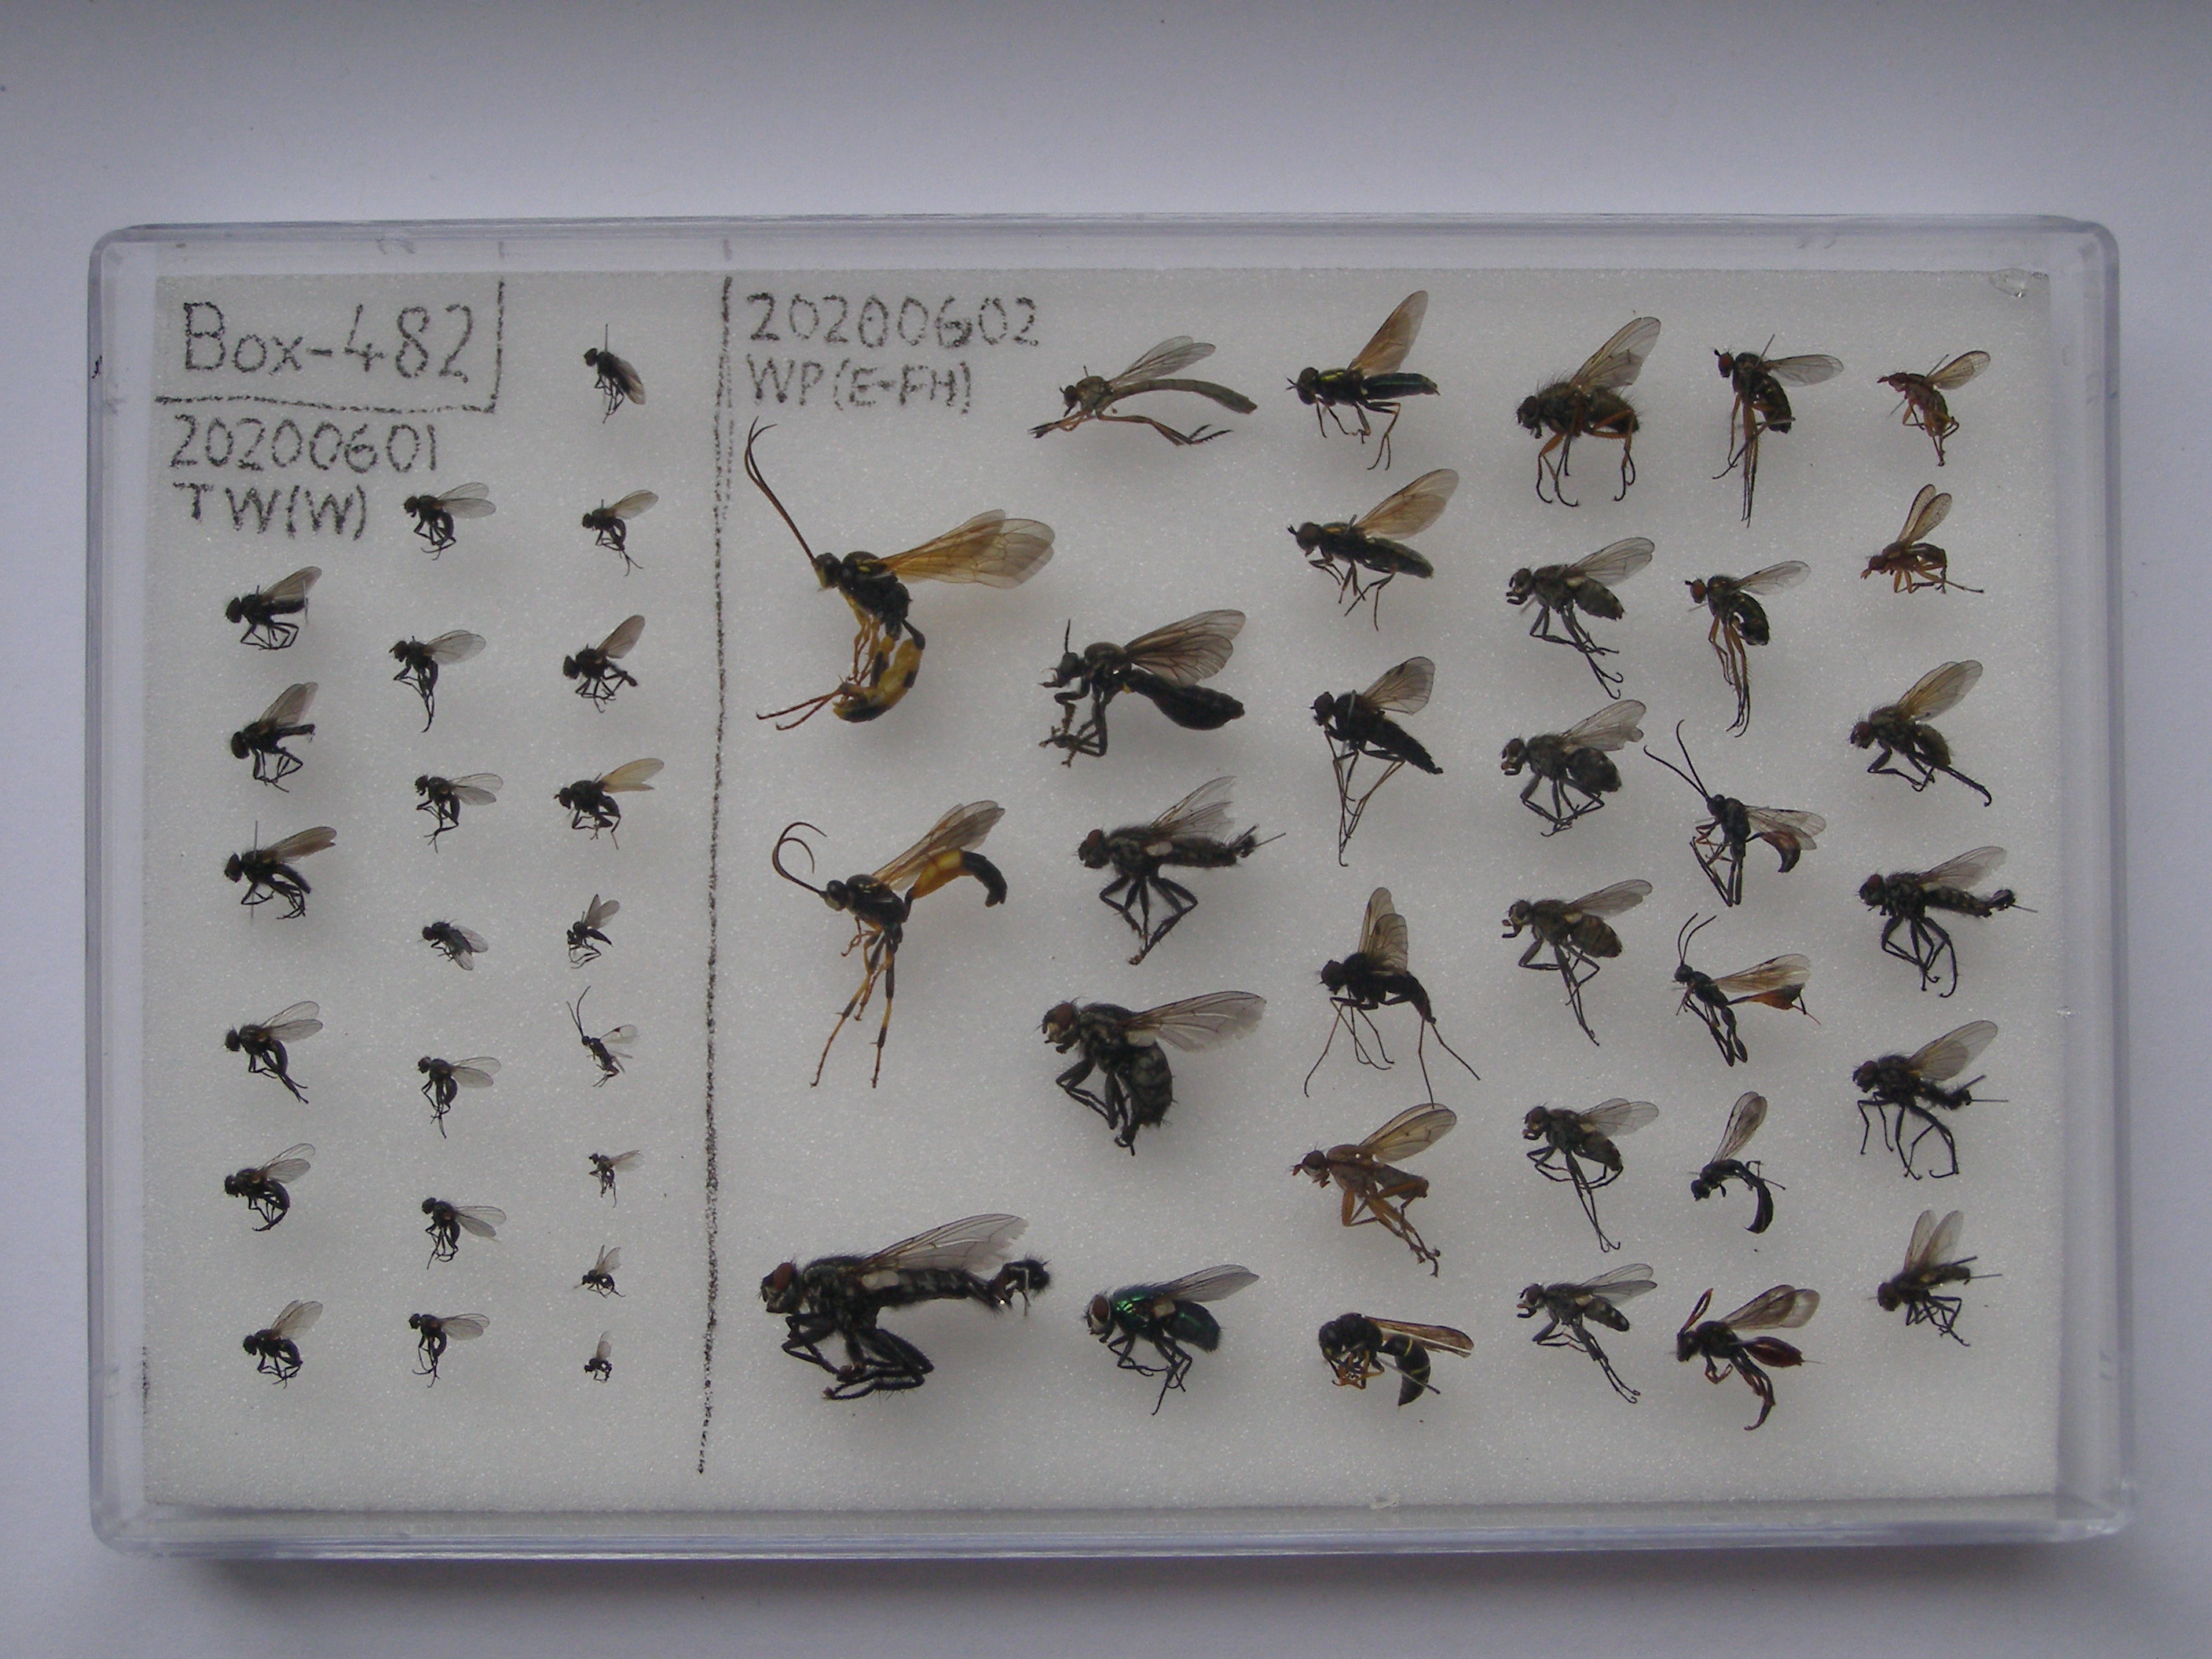 Box-482
20200601
TW(W)
20200602
WP(E-FH)